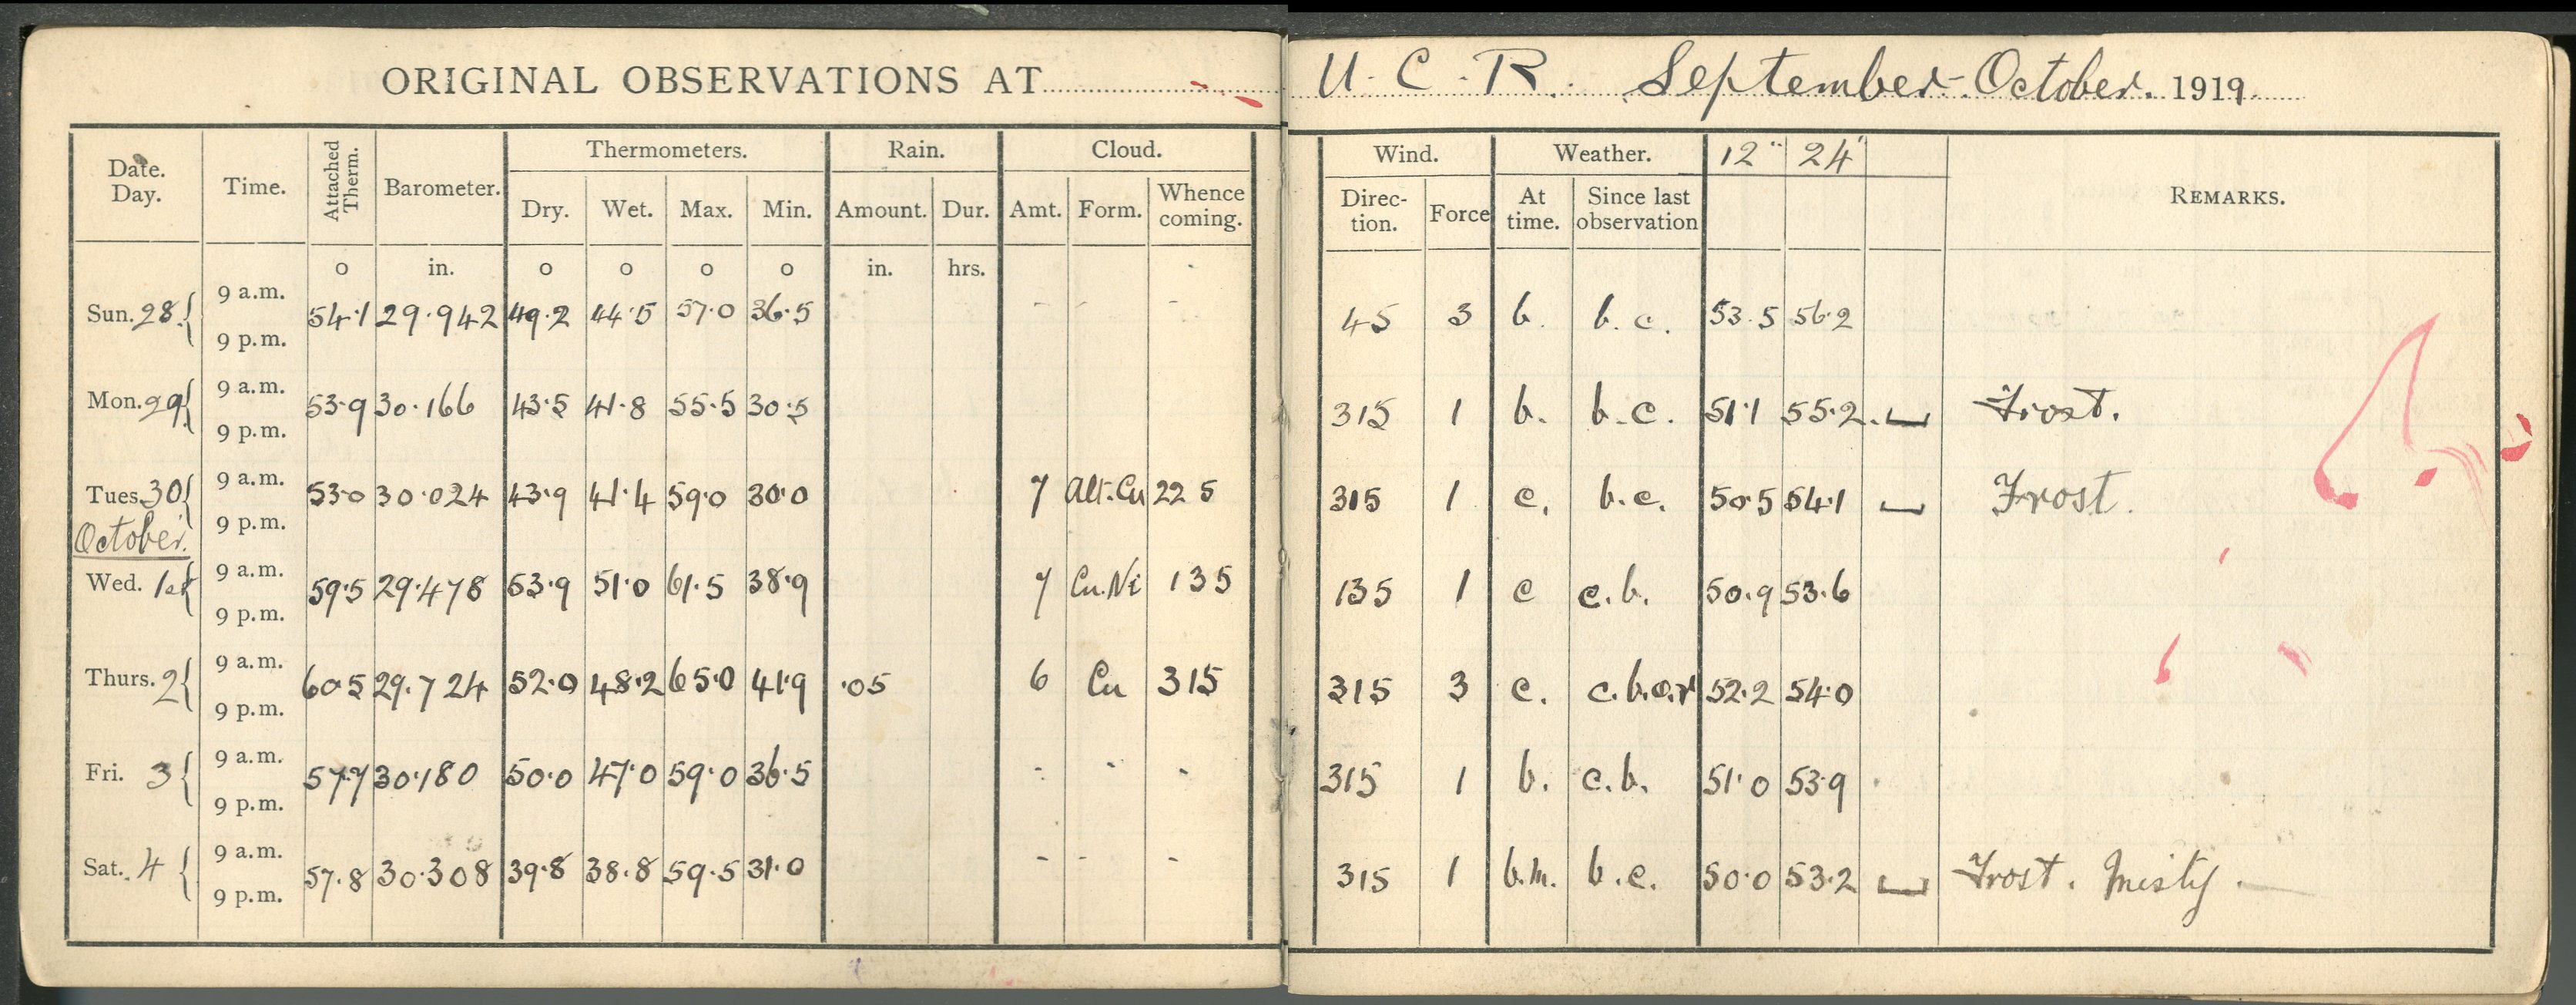 ORIGINAL OBSERVATIONS AT U. C. R. September-October. 1919
Date. Day. Time. Attached Therm. Barometer. Thermometers. Rain. Cloud. Wind. Weather. 12" 24" REMARKS.
Dry. Wet. Max. Min. Amount. Dur. Amt. Form. Whence coming. Direc-tion. Force At time. Since last observation
o in. o o o o in. hrs.
Sun. 28 { 9 a.m. 9 p.m. 54·1 29·942 49·2 44·5 57·0 36·5 - - - 45 3 b. b. c. 53.5 56·2
Mon. 29 { 9 a.m. 9 p.m. 53·9 30·166 43·5 41·8 55·5 30·5 315 1 b. b.c. 51·1 55·2 Frost.
Tues. 30 { 9 a.m. 9 p.m. 53·0 30·024 43·9 41·4 59·0 30·0 7 Alt.Cu 225 315 1 c. b.c. 50·5 54·1 Frost.
October.
Wed. 1st { 9 a.m. 9 p.m. 59·5 29·478 53·9 51·0 61·5 38·9 7 Cu.Ni 135 135 1 c c.b. 50.9 53.6
Thurs. 2 { 9 a.m. 9 p.m. 60·5 29.724 52·0 48·2 65·0 41·9 ·05 6 Cu 315 315 3 c. c.b.o.r 52·2 54·0
Fri. 3 { 9 a.m. 9 p.m. 57·7 30·180 50·0 47·0 59·0 36·5 - - - 315 1 b. c.b. 51·0 53·9
Sat. 4 { 9 a.m. 9 p.m. 57.8 30·308 39·8 38·8 59·5 31·0 - - - 315 1 b.m. b.c. 50·0 53·2 Frost. Misty.